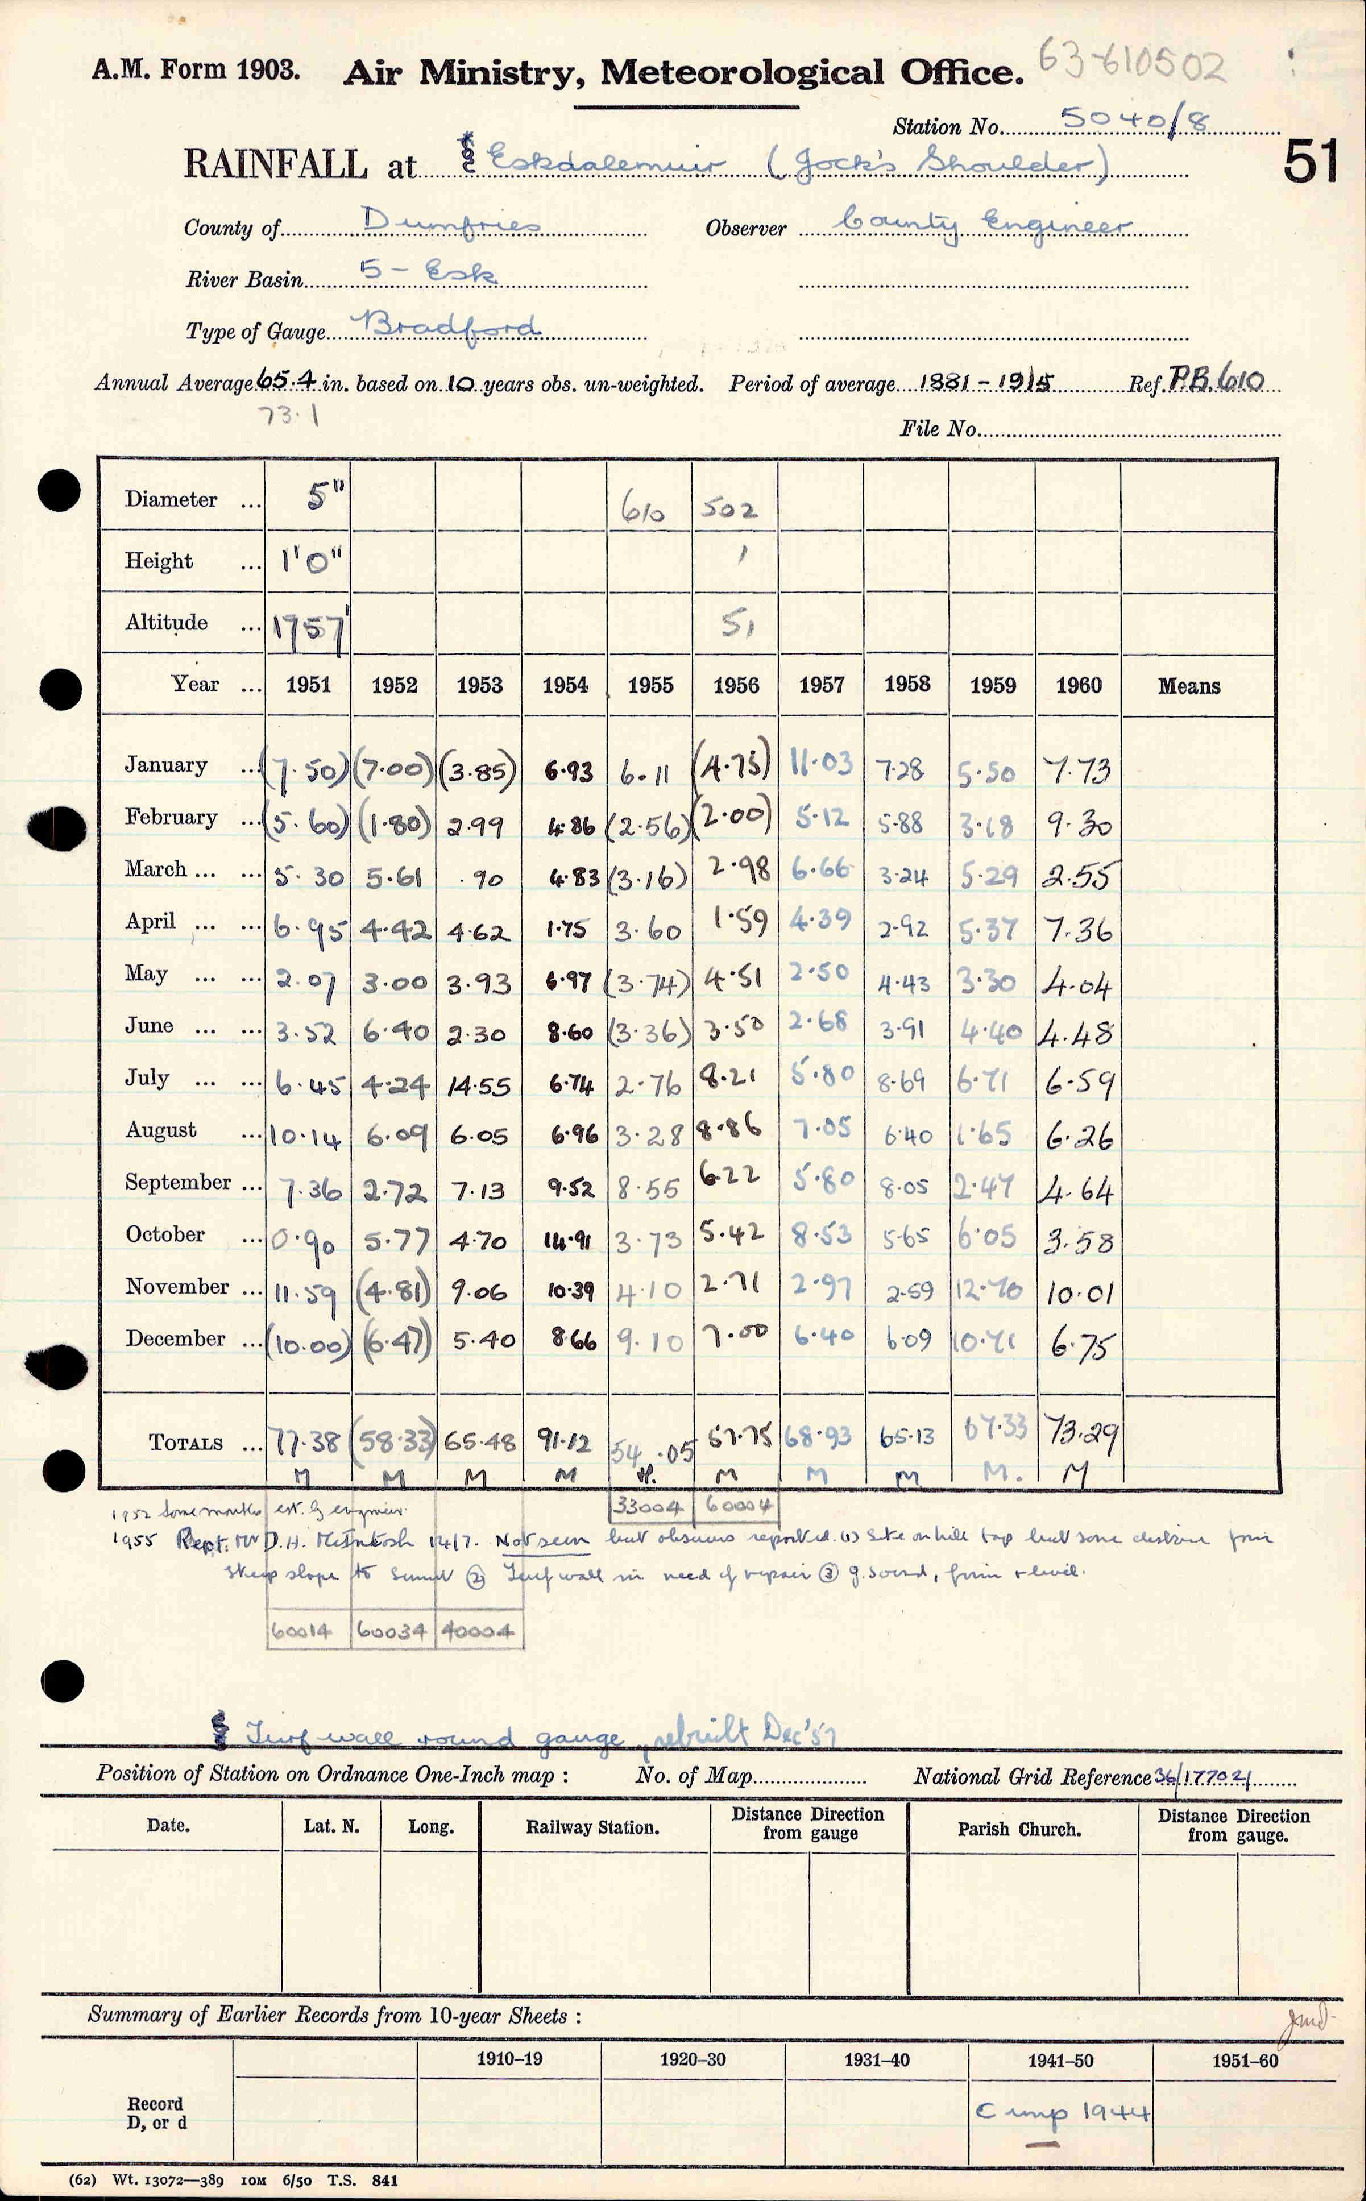 A.M. Form 1903. Air Ministry, Meteorological Office. 63-610502
Station No. 5040/8
RAINFALL at Eskdalemuir (Jock's Shoulder) 51
County of Dumfries Observer County Engineer
River Basin 5 - Esk
Type of Gauge Bradford
Annual Average 65.4 in. based on 10 years obs. un-weighted. Period of average 1881 - 1915 Ref. P.B. 610
73.1
File No.
Diameter ... 5" 610 502
Height ... 1'0" 1
Altitude ... 1957' 51
Year ... 1951 1952 1953 1954 1955 1956 1957 1958 1959 1960 Means
January ... (7.50) (7.00) (3.85) 6.93 6.11 (4.75) 11.03 7.28 5.50 7.73
February ... (5.60) (1.80) 2.99 4.86 (2.56) (2.00) 5.12 5.88 3.18 9.30
March ... ... 5.30 5.61 .90 4.83 (3.16) 2.98 6.66 3.24 5.29 2.55
April ... ... 6.95 4.42 4.62 1.75 3.60 1.59 4.39 2.92 5.37 7.36
May ... ... 2.07 3.00 3.93 6.97 (3.74) 4.51 2.50 4.43 3.30 4.04
June ... ... 3.52 6.40 2.30 8.60 (3.36) 3.50 2.68 3.91 4.40 4.48
July ... ... 6.45 4.24 14.55 6.74 2.76 8.21 5.80 8.69 6.71 6.59
August ... 10.14 6.09 6.05 6.96 3.28 8.86 7.05 6.40 1.65 6.26
September ... 7.36 2.72 7.13 9.52 8.55 6.22 5.80 8.05 2.47 4.64
October ... 0.90 5.77 4.70 14.91 3.73 5.42 8.53 5.65 6.05 3.58
November ... 11.59 (4.81) 9.06 10.39 4.10 2.71 2.97 2.59 12.70 10.01
December ... (10.00) (6.47) 5.40 8.66 9.10 7.00 6.40 6.09 10.71 6.75
TOTALS ... 77.38 (58.33) 65.48 91.12 54.05 57.75 68.93 65.13 67.33 73.29
M M M M M M M M. M
33004 60004
1952 Some months est. by engineer.
1955 Rept. Mr D.H. McIntosh 14/7. Not seen but observer reported. (1) Site on hill top but some distance from
steep slope to summit (2) Turf wall in need of repair (3) g. sound, firm + level.
60014 60034 40004
Turf wall round gauge, rebuilt Dec '57
Position of Station on Ordnance One-Inch map : No. of Map National Grid Reference 36/177021
Date. Lat. N. Long. Railway Station. Distance Direction from gauge Parish Church. Distance Direction from gauge.
Summary of Earlier Records from 10-year Sheets :
1910–19 1920–30 1931–40 1941–50 1951–60
Record
D, or d
C 1944
(62) Wt. 13072—389 10M 6/50 T.S. 841